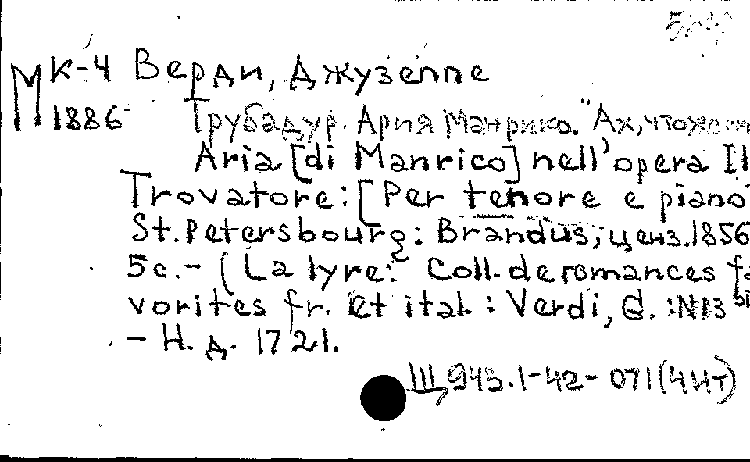 М К-4 Верди, Джузеппе
1886 Трубадур. Ария Манрико. "Ах, что же
Aria [di Manrico] nell'opera Il
Trovatore: [Per tenore e piano
St. Petersbourg: Brandus, ценз. 1856
5 с. – (La lyre: Coll. de romances fa
vorites fr. et ital. : Verdi, G. : N13
– Н. д. 1721.
Щ943.1-42-071(4Ит)